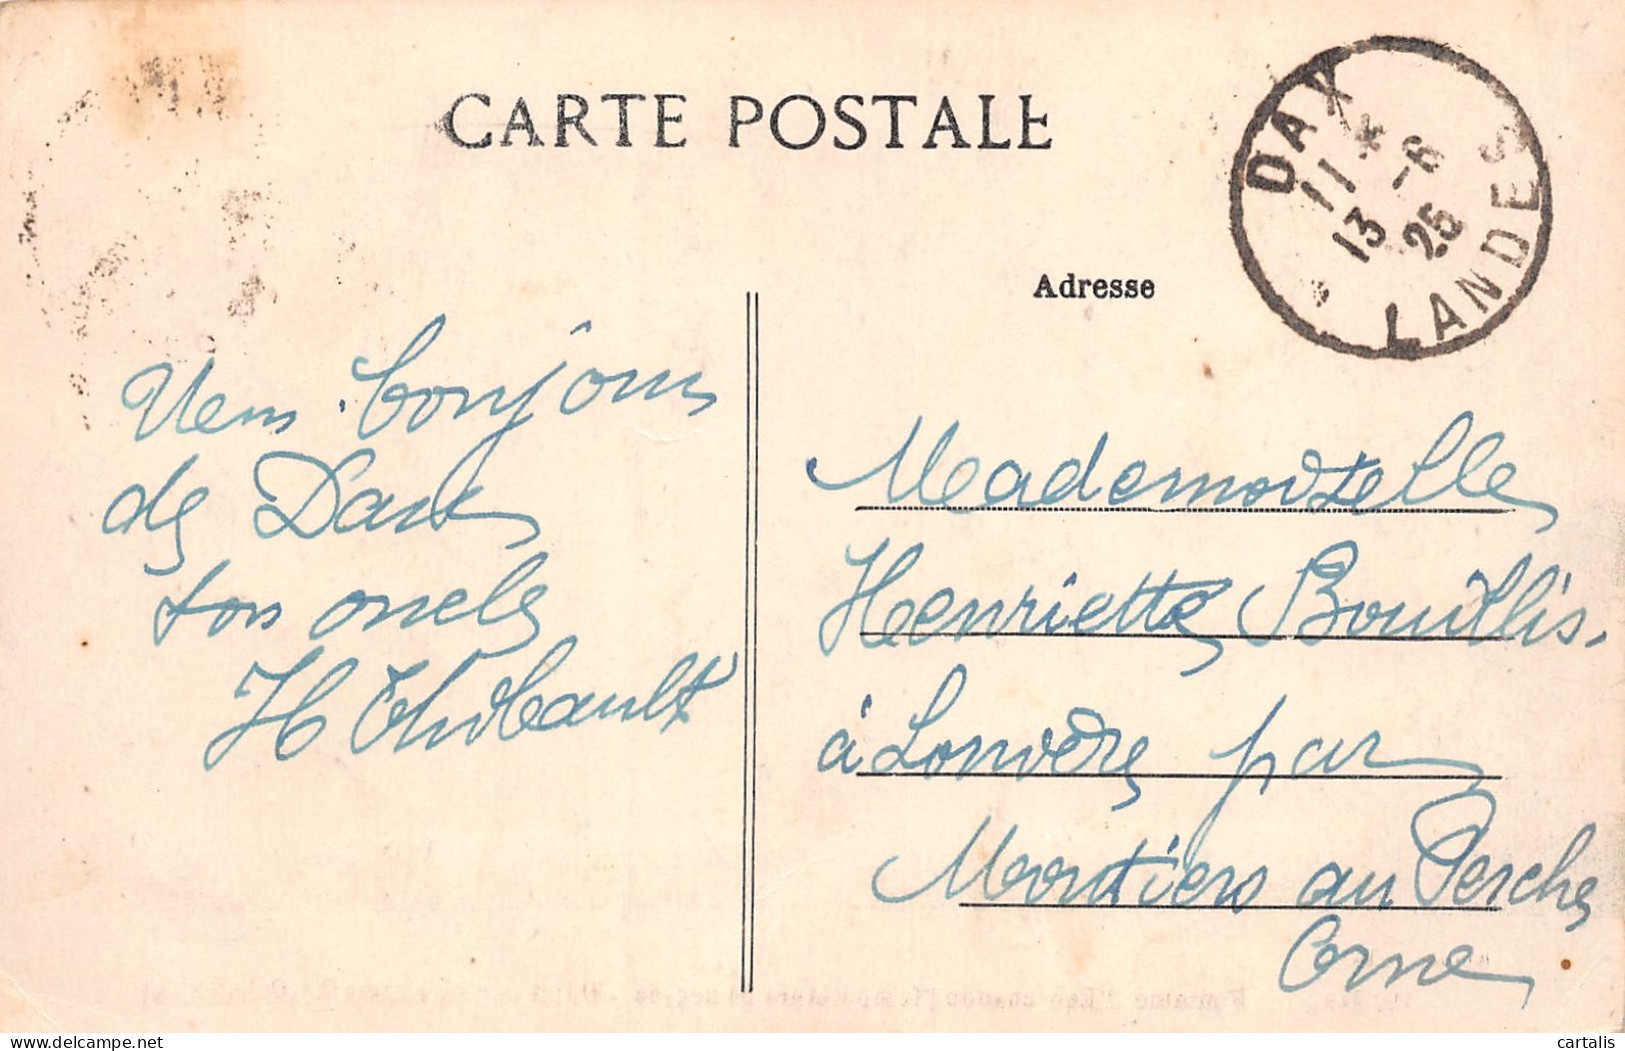 CARTE POSTALE
DAX
11 * -6
13 25
LANDES
Adresse
bonjour
de Dax
ton oncle
H Thibault
Mademoiselle
Henriette Bouillis.
à Lonvère par
Moutiers au Perche
Orne
delcampe.net
cartalis